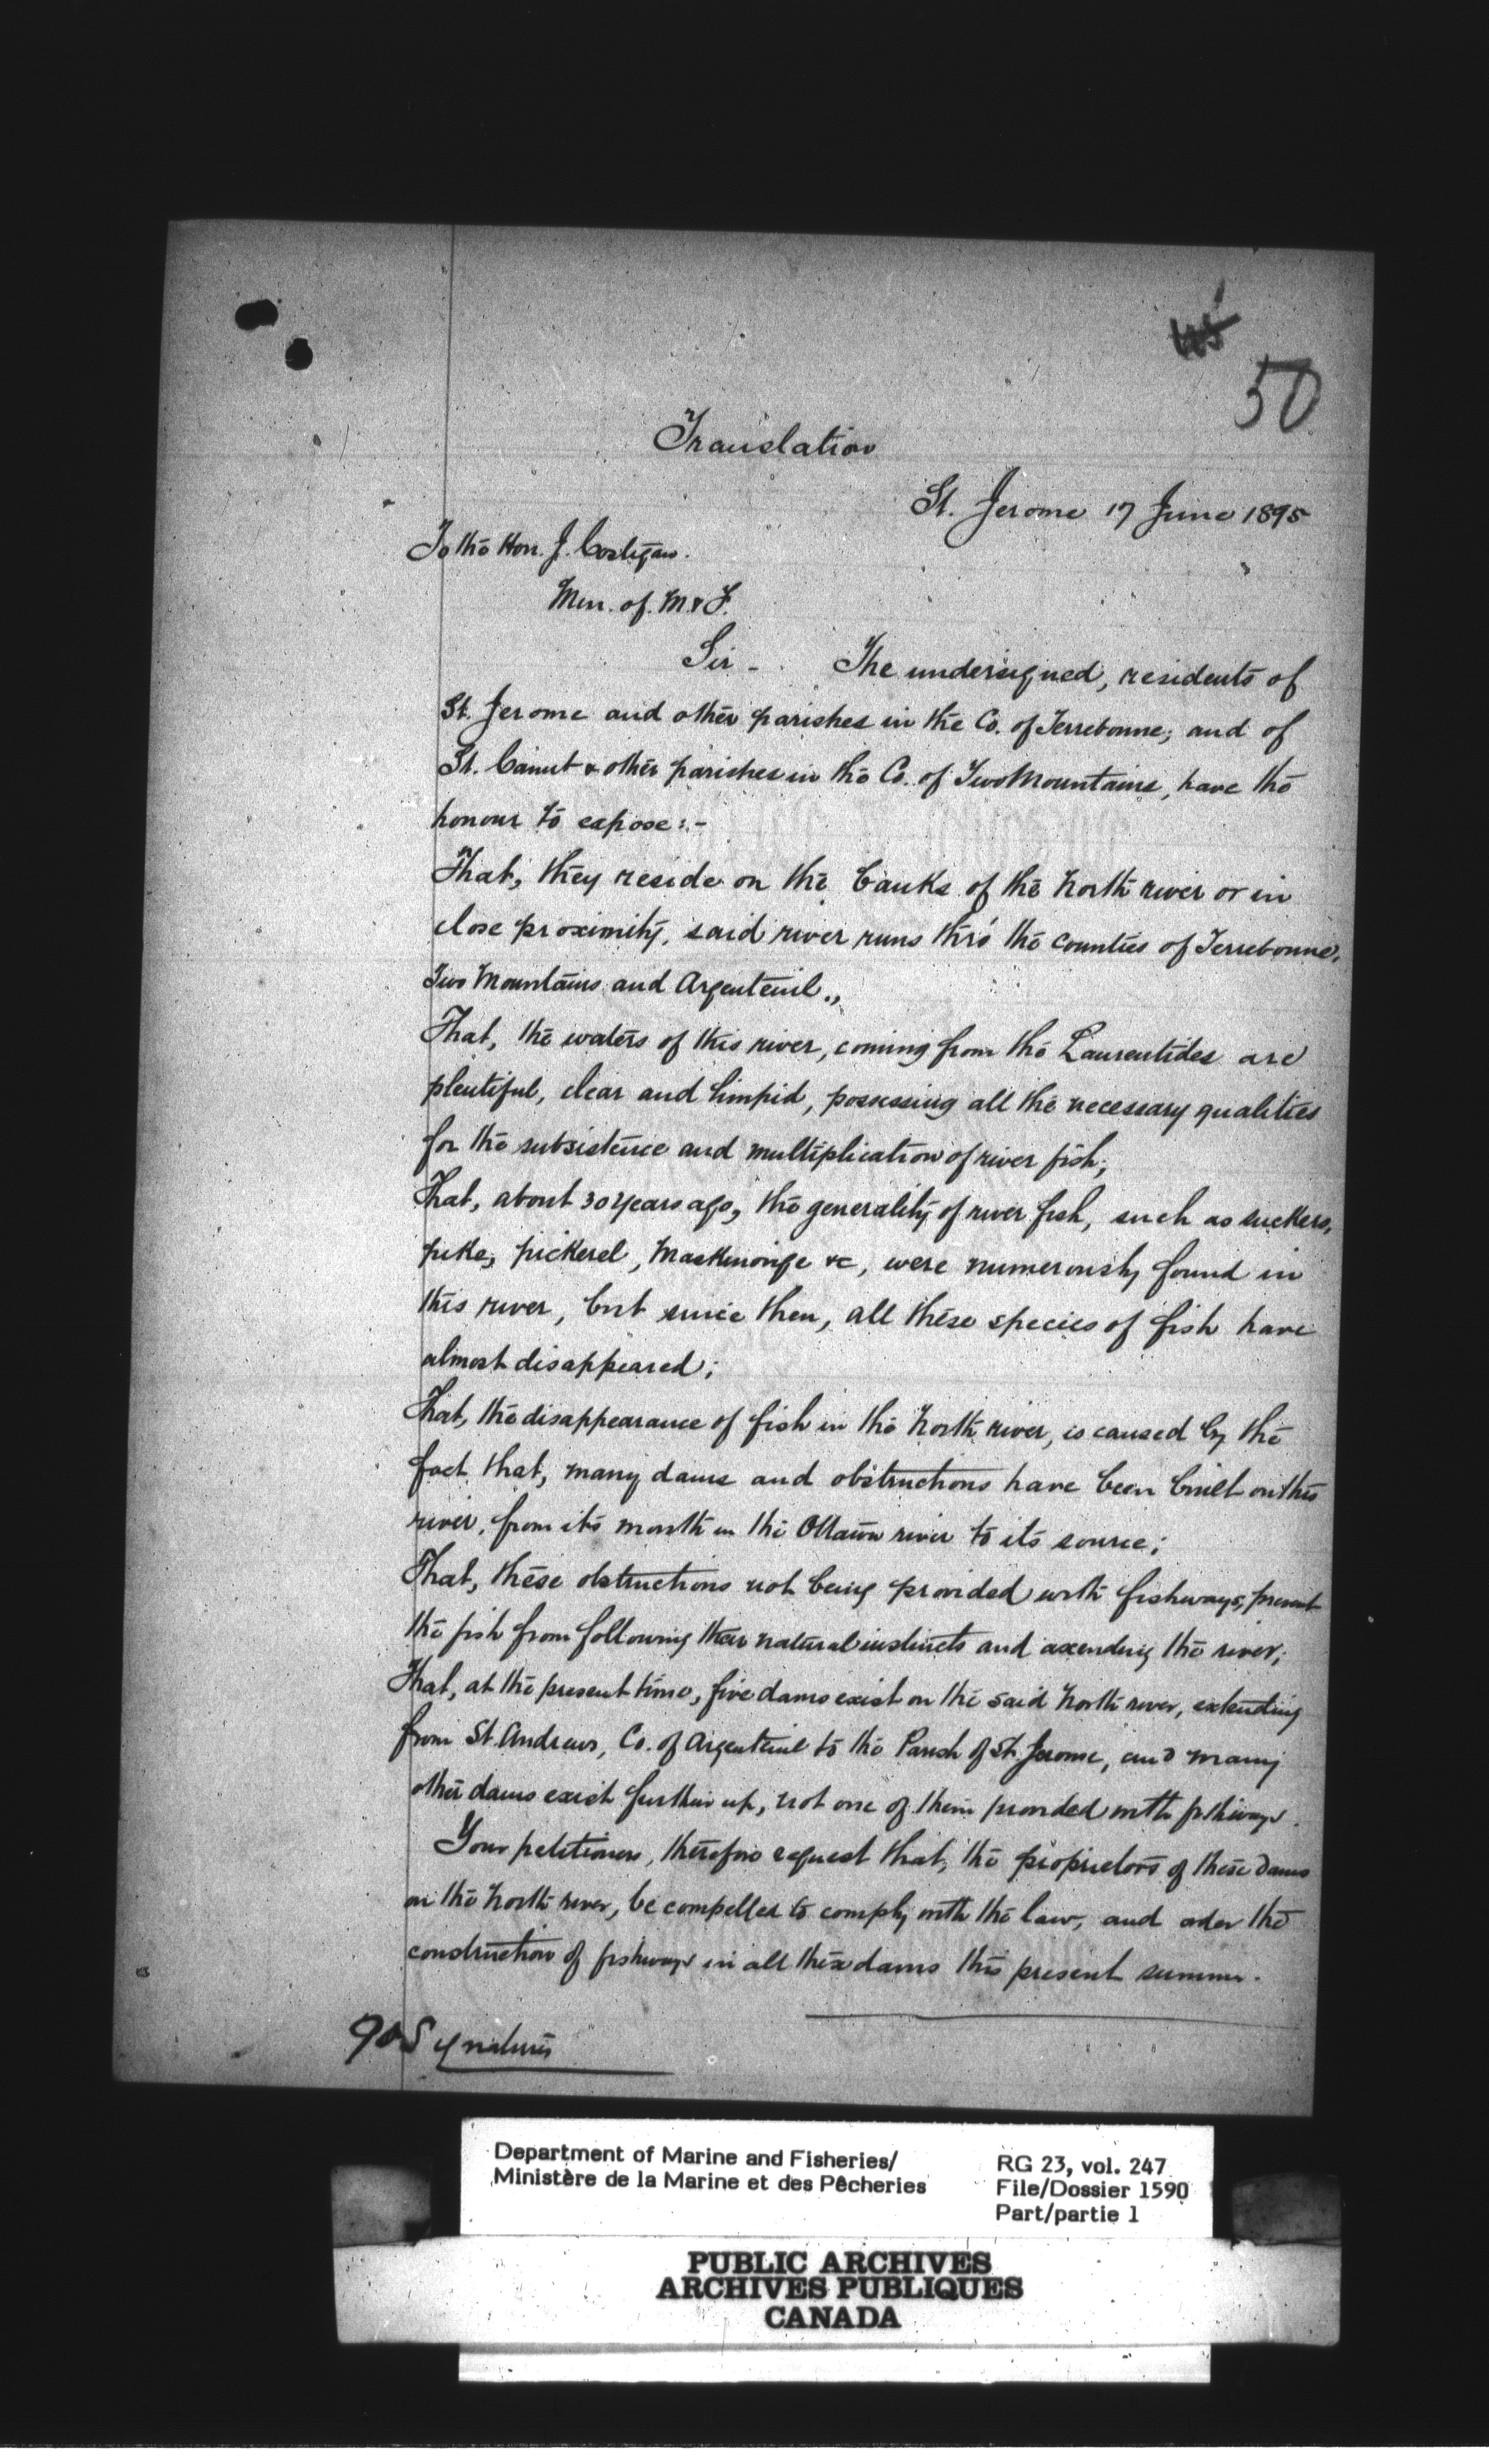 50
Translation
St. Jerome 17 June 1895
To the Hon. J. Costigan.
Min. of. M. & F.
Sir - The undersigned, residents of
St. Jerome and other parishes in the Co. of Terrebonne; and of
St. Canut & other parishes in the Co. of Two Mountains, have the
honour to expose:-
That, they reside on the banks of the North river or in
close proximity, said river runs thro' the counties of Terrebonne,
Two Mountains and Argenteuil.,
That, the waters of this river, coming from the Laurentides are
plentiful, clear and limpid, possessing all the necessary qualities
for the subsistence and multiplication of river fish;
That, about 30 years ago, the generality of river fish, such as suckers,
pike, pickerel, maskinonge &c, were numerously found in
this river, but since then, all these species of fish have
almost disappeared;
That, the disappearance of fish in the North river, is caused by the
fact that, many dams and obstructions have been built on this
river, from its mouth in the Ottawa river to its source;
That, these obstructions not being provided with fishways, prevent
the fish from following their natural instincts and ascending the river;
That, at the present time, five dams exist on the said North river, extending
from St. Andrews, Co. of Argenteuil to the Parish of St. Jerome, and many
other dams exist further up, not one of them provided with fishways.
Your petitioners, therefore request that, the proprietors of these dams
on the North river, be compelled to comply with the law, and order the
construction of fishways in all these dams this present summer.
90 Signatures
Department of Marine and Fisheries/
Ministère de la Marine et des Pêcheries
RG 23, vol. 247
File/Dossier 1590
Part/partie 1
PUBLIC ARCHIVES
ARCHIVES PUBLIQUES
CANADA